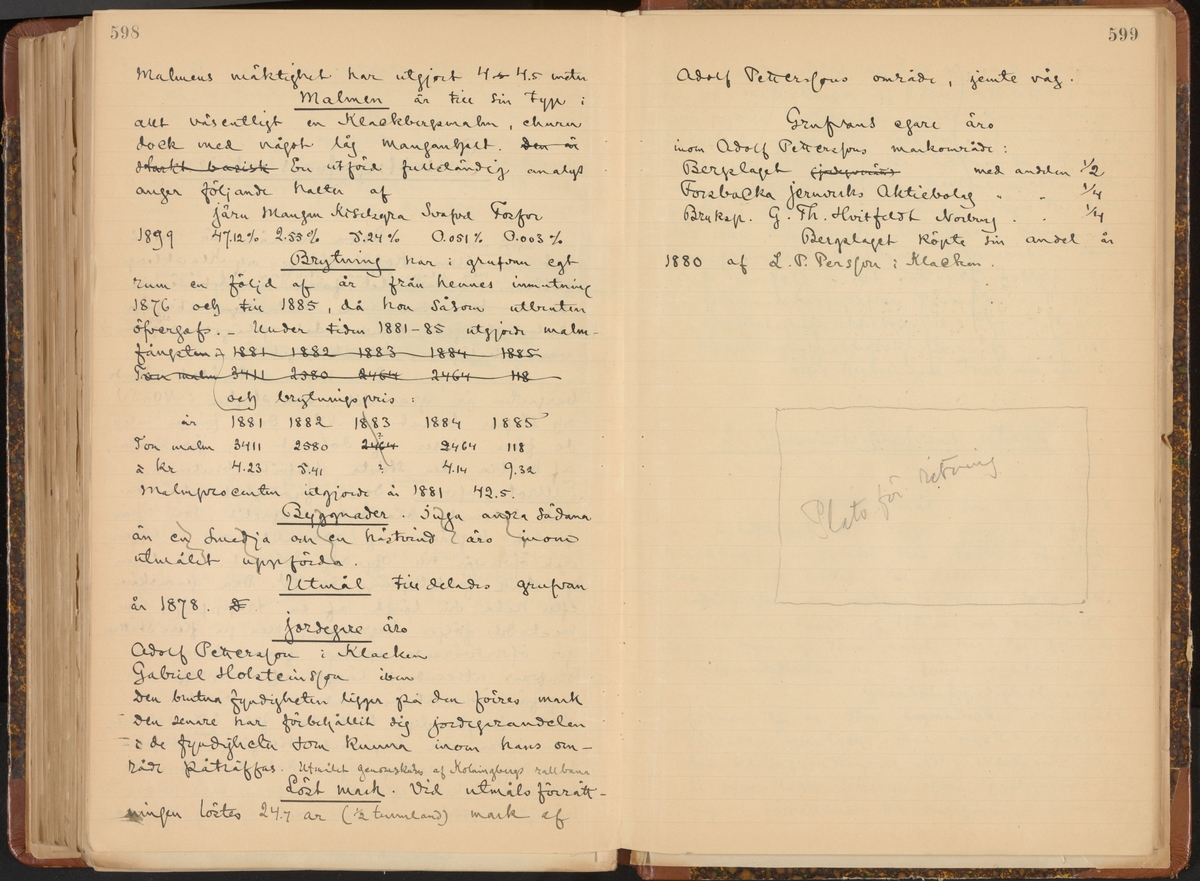 598
Malmens mäktighet har utgjort 4 à 4.5 meter
Malmen är till sin typ i
allt väsentligt en Klackbergsmalm, ehuru
dock med något låg manganhalt. Den är
starkt basisk En utförd fullständig analys
anger följande halter af
järn Mangan Kiselsyra Svafvel Fosfor
1899 47.12% 2.55% 5.24% 0.051% 0.003%
Brytning har i grufvan egt
rum en följd af år från hennes inmutning
1876 och till 1885, då hon såsom utbruten
öfvergafs. – Under tiden 1881-85 utgjorde malm-
fångsten: 1881 1882 1883 1884 1885
Ton malm 3411 2580 2464 2464 118
och brytningspris:
år 1881 1882 1883 1884 1885
Ton malm 3411 2580 2464 2464 118
à kr 4.23 5.41 ? 4.14 9.32
Malmprocenten utgjorde år 1881 42.5.
Byggnader. Inga andra sådana
än en smedja och en hästvind äro inom
utmålet uppförda.
Utmål tilldelades grufvan
år 1878.
Jordegare äro
Adolf Pettersson i Klacken
Gabriel Holsteinsson ibm
Den brutna fyndigheten ligger på den förres mark
den senare har förbehållit sig jordegarandelen
i de fyndigheter som kunna inom hans om-
råde påträffas. Utmålet genomskäres af Kolningbergs rallbana
Löst mark. Vid utmålsförrätt-
ningen löstes 24.7 ar (1/2 tunnland) mark af
599
Adolf Petterssons område, jemte väg.
Grufvans egare äro
inom Adolf Petterssons markområde:
Bergslaget (jordegarins) med andelen 1/2
Forsbacka jernverks Aktiebolag " " 1/4
Bruksp. G. Th. Hvitfeldt Norberg . . 1/4
Bergslaget köpte sin andel år
1880 af L. P. Persson i Klacken.
Plats för ritning